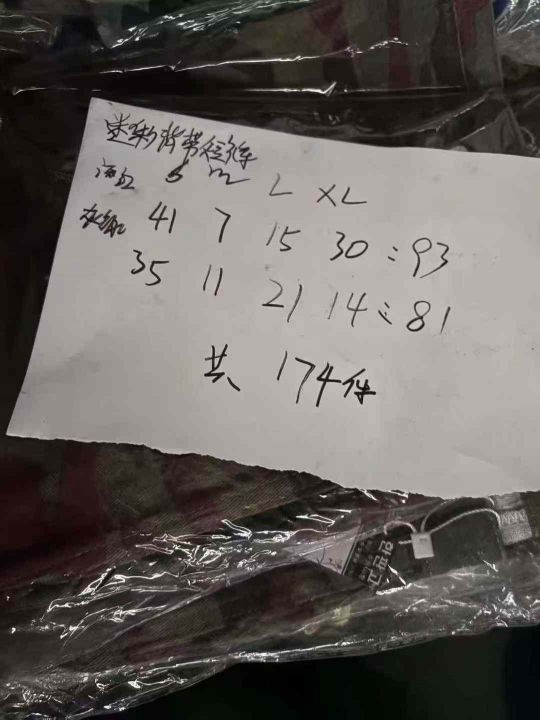 迷彩背带短裤
S M L XL
41 7 15 30 : 93
35 11 21 14 : 81
共 174件